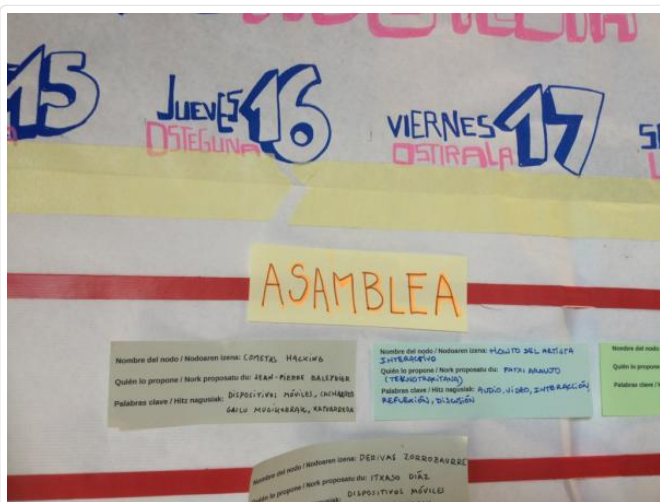 15
JUEVES 16
OSTEGUNA
VIERNES 17
OSTIRALA
ASAMBLEA
Nombre del nodo / Nodoaren izena: COMETAS HACKING
Quién lo propone / Nork proposatu du: JEAN-PIERRE
Palabras clave / Hitz nagusiak: DISPOSITIVOS MÓVILES, CACHARROS
GAILU MUGIKORRAK,
Nombre del nodo / Nodoaren izena: MONTO DEL ARTISTA
INTERACTIVO
Quién lo propone / Nork proposatu du: PATXI ARAUJO
Palabras clave / Hitz nagusiak: AUDIO, VIDEO, INTERACCIÓN,
REFLEXIÓN, DISCUSIÓN
Nombre del nodo
Quién lo propone
Palabras clave /
Nombre del nodo / Nodoaren izena: DERIVAS ZORROZAURRE
Quién lo propone / Nork proposatu du: ITXASO DÍAZ
DISPOSITIVOS MÓVILES